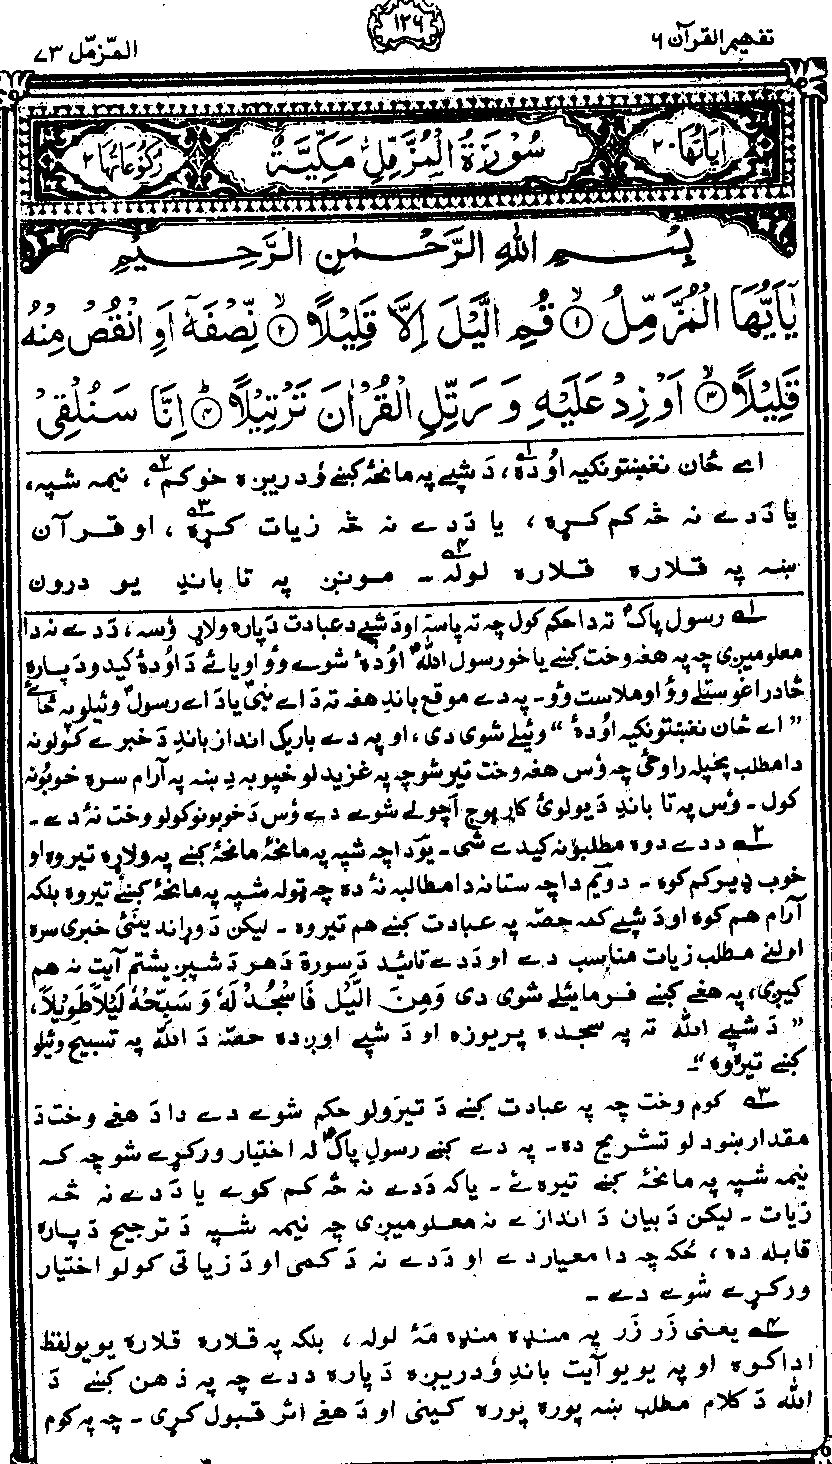 تفهيم القرآن ٦
١٢٩
المزّمّل ٧٣
اٰيَاتُهَا ٢٠
سُوْرَةُ الْمُزَّمِّلِ مَكِّيَّةٌ
رُكُوْعَاتُهَا ٢
بِسْمِ اللهِ الرَّحْمٰنِ الرَّحِيْمِ
يٰۤاَيُّهَا الْمُزَّمِّلُ ۙ﴿١﴾ قُمِ الَّيْلَ اِلَّا قَلِيْلًا ۙ﴿٢﴾ نِّصْفَهٗۤ اَوِ انْقُصْ مِنْهُ
قَلِيْلًا ۙ﴿٣﴾ اَوْ زِدْ عَلَيْهِ وَ رَتِّلِ الْقُرْاٰنَ تَرْتِيْلًا ؕ﴿٤﴾ اِنَّا سَنُلْقِيْ
اے ځان نغښتونکیه اوُده۱، دَ شپے په مانځۀ کښے وُدریږه خو کم۲، نیمه شپه،
یا دَدے نه څه کم کړه، یا دَدے نه څه زیات کړه۳، او قرآن
ښه په قلاره قلاره لوله۴ ـ مونږ په تا باندِ یو درون
۱ رسولِ پاکؐ ته دا حکم کول چه ته پاسه او دَ شپے دَ عبادت دَپاره ولاړ وُسه، دَدے نه دا
معلومیږی چه په هغه وخت کښے یا خو رسول اللهؐ اوُدۀ شوے وؤ او یا ئے دَ اوُدۀ کیدو دَپاره
څادر اغوستلے وؤ او ملاست وؤ ـ په دے موقع باندِ هغه ته دَ اے نبیؐ یا دَ اے رسولؐ وئیلو په ځائے
” اے ځان نغښتونکیه اوُدۀ “ وئیلے شوی دی، او په دے باریک انداز باندِ دَ خبرے کولو نه
دا مطلب پخپله راوځی چه وُس هغه وخت تیر شو چه په غزیدلو خپو به دِ ښه په آرام سره خوبُونه
کول ـ وُس په تا باندِ دَ یو لوئ کار پوچ اچولے شوے دے وُس دَ خوبونو کولو وخت نۀ دے ـ
۲ ددے دوه مطلبُونه کیدے شی ـ یَو دا چه شپه په مانځۀ مانځۀ کښے په ولاړه تیروه او
خوب ډیر کم کوه ـ دویَم دا چه ستا نه دا مطالبه نۀ ده چه ټوله شپه په مانځۀ کښے تیروه بلکه
آرام هم کوه او دَ شپے کمه حصّه په عبادت کښے هم تیروه ـ لیکن دَ وړاندینئ خبری سره
اولنے مطلب زیات مناسب دے او دَدے تائید دَ سورة دَهر دَ شپږیشتم آیت نه هم
کیږی، په هغے کښے فرمائیلے شوی دی وَمِنَ الَّيْلِ فَاسْجُدْ لَهٗ وَسَبِّحْهُ لَيْلًا طَوِيْلًا،
” دَ شپے اللهَ ته په سجده پریوزه او دَ شپے اوږده حصّه دَ اللهَ په تسبیح وئیلو
کښے تیروه “ـ
۳ کوم وخت چه په عبادت کښے دَ تیرَولو حکم شوے دے دا دَ هغے وخت دَ
مقدار ښودلو تشریح ده ـ په دے کښے رسولِ پاکؐ له اختیار ورکړے شو چه که
نیمه شپه په مانځۀ کښے تیره ئے ـ یا که دَدے نه څه کم کوے یا دَدے نه څه
زیات ـ لیکن دَ بیان دَ اندازے نه معلومیږی چه نیمه شپه دَ ترجیح دَپاره
قابله ده، ځکه چه دا معیار دے او دَدے نه دَ کمی او دَ زیاتی کولو اختیار
ورکړے شوے دے ـ
۴ یعنی زَر زَر په منډه منډه مَۀ لوله، بلکه په قلاره قلاره یو یو لفظ
ادا کوه او په یو یو آیت باندِ وُدریږه دَپاره ددے چه په ذهن کښے دَ
الله دَ کلام مطلب ښه پوره پوره کینی او دَ هغے اثر قبول کړی ـ چه په کوم